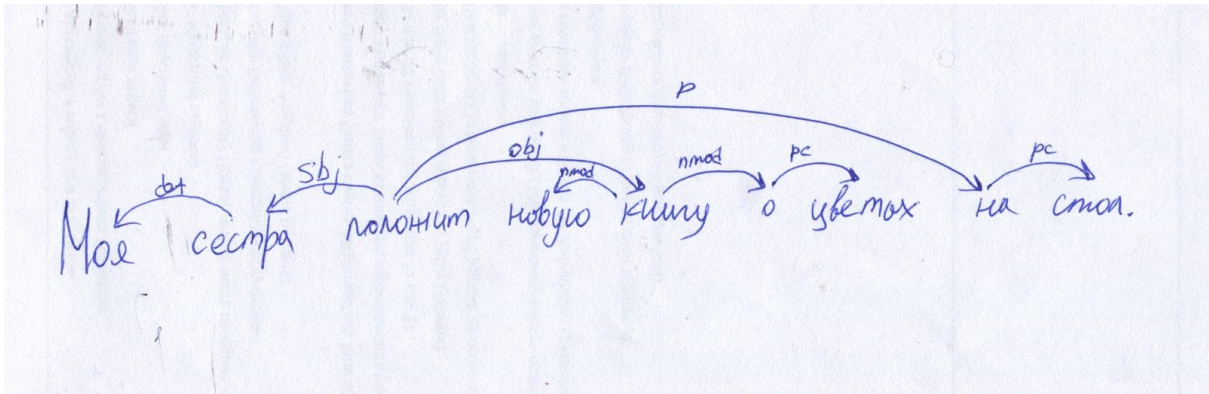 p
obj
Sbj nmod nmod pc pc
det
Моя сестра положит новую книгу о цветах на стол.